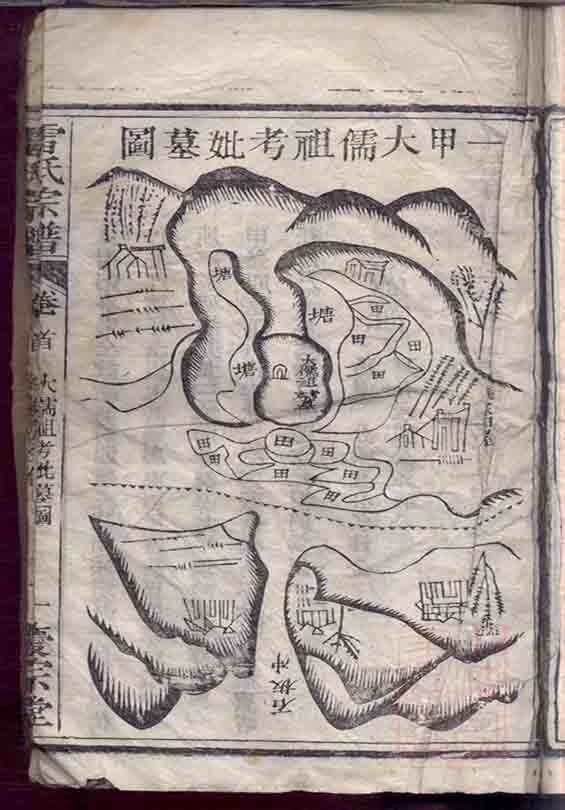 一甲大儒祖考妣墓圖
塘
塘
塘
大儒祖考妣墓
田
田
田
田
田
田
田
田
田
田
田
石板冲
雷氏宗譜
卷首
大儒祖考妣墓圖
一
慶宗堂